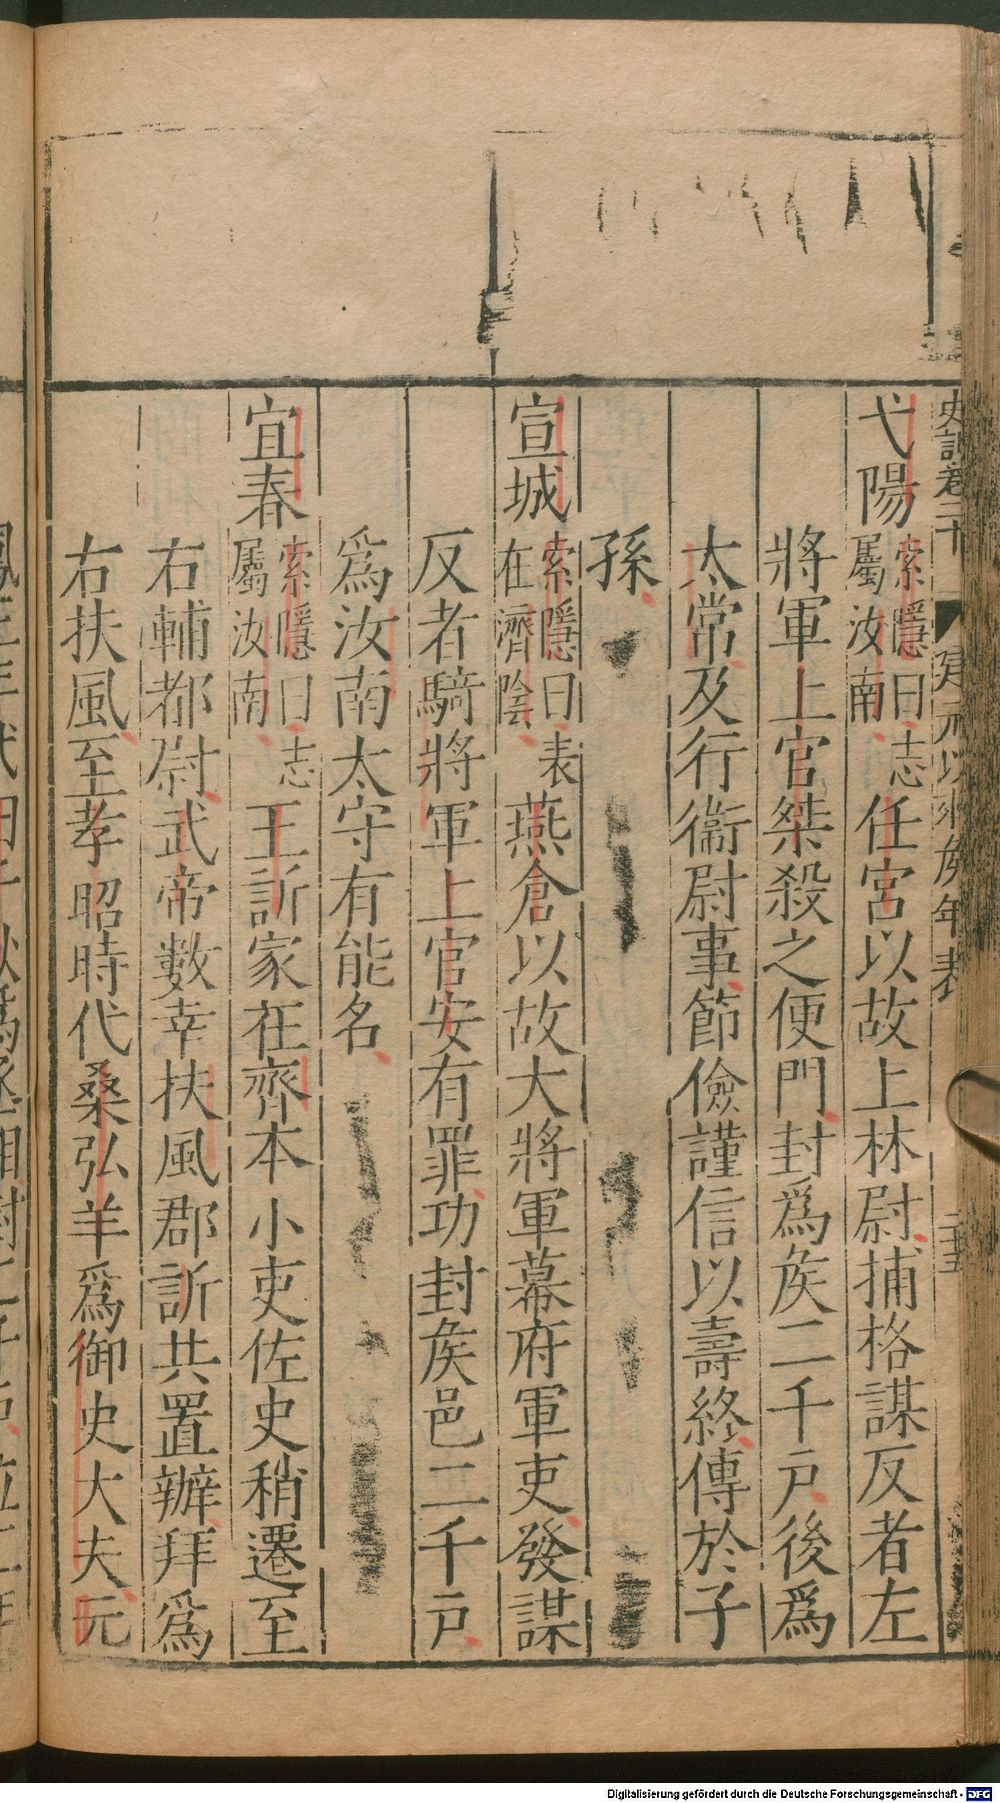 史記卷二十 建元以來矦年表 二十五
弋陽 索隱曰志屬汝南 任宮以故上林尉捕格謀反者左
將軍上官桀殺之便門封爲矦二千戸後爲
太常及行衞尉事節儉謹信以壽終傳於子
孫
宣城 索隱曰表在濟陰 燕倉以故大將軍幕府軍吏發謀
反者騎將軍上官安有罪功封矦邑二千戸
爲汝南太守有能名
宜春 索隱曰志屬汝南 王訢家在齊本小吏佐史稍遷至
右輔都尉武帝數幸扶風郡訢共置辦拜爲
右扶風至孝昭時代桑弘羊爲御史大夫元
Digitalisierung gefördert durch die Deutsche Forschungsgemeinschaft - DFG